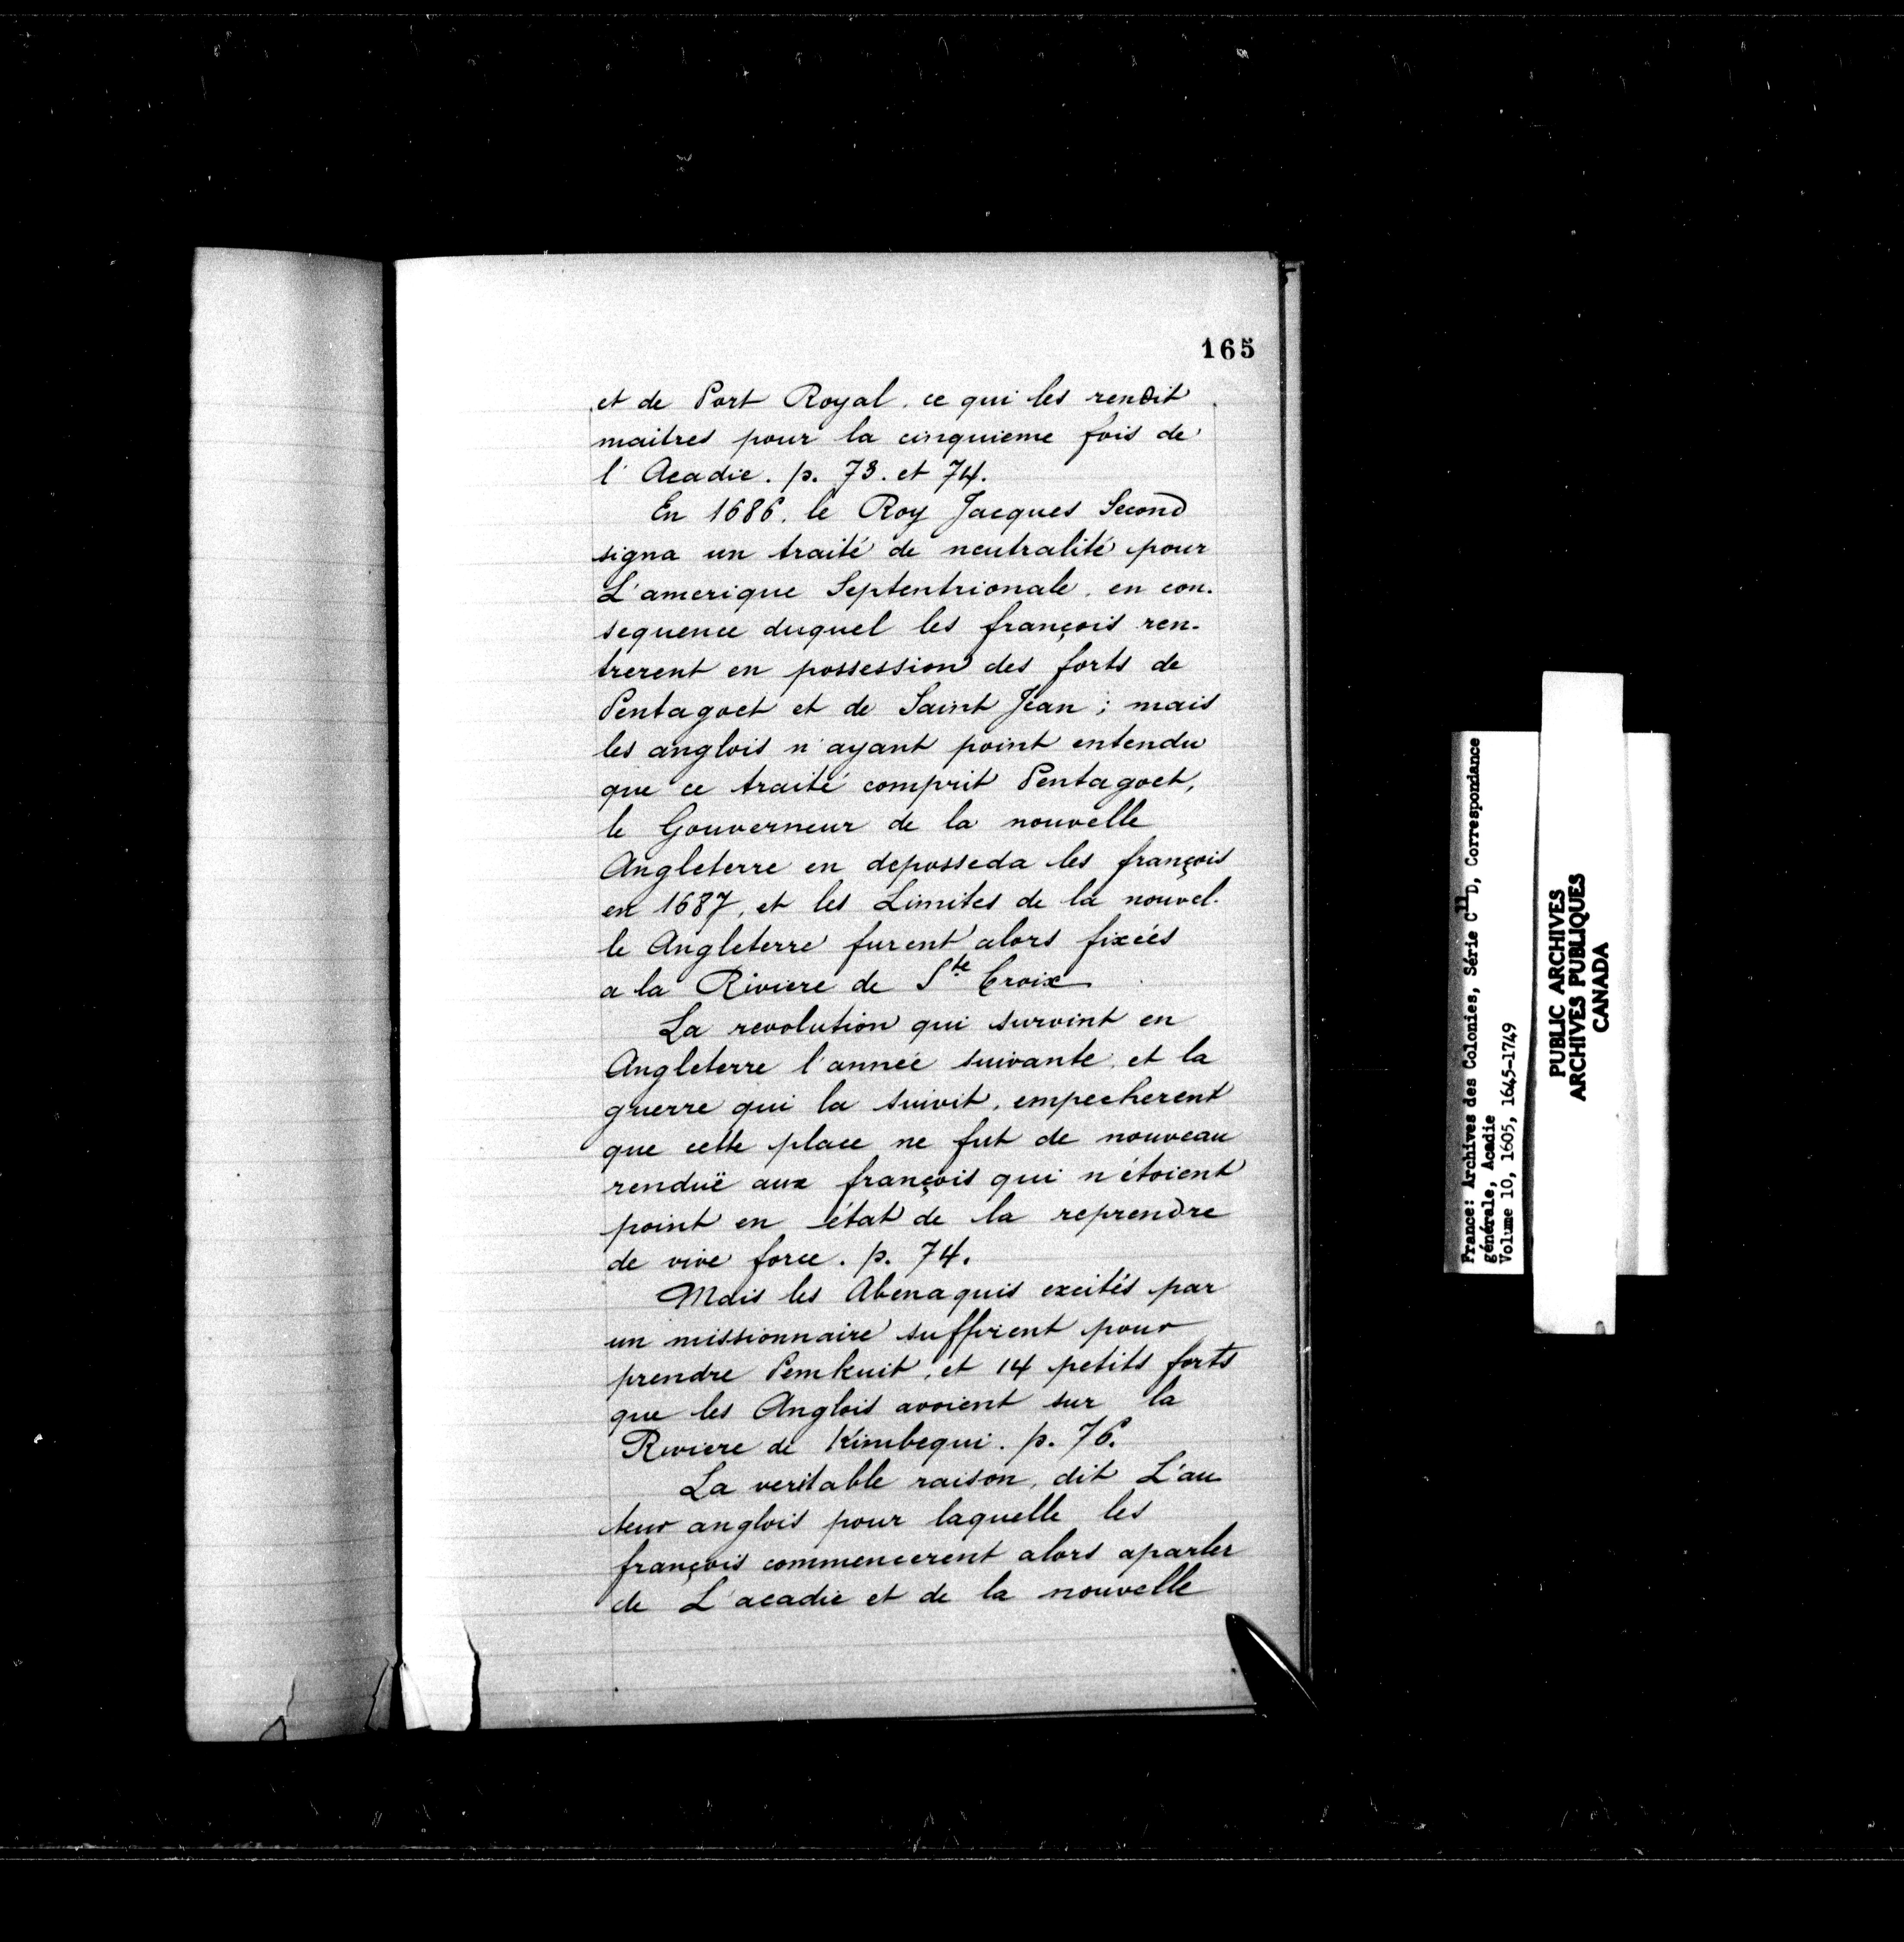 165
et de Port Royal, ce qui les rendit
maitres pour la cinquieme fois de
l'Acadie. p. 73. et 74.
En 1686, le Roy Jacques Second
signa un traité de neutralité pour
L'amerique Septentrionale, en con-
sequence duquel les françois ren-
trerent en possession des forts de
Pentagoet et de Saint Jean; mais
les anglois n'ayant point entendu
que ce traité comprit Pentagoet,
le Gouverneur de la nouvelle
Angleterre en deposseda les françois
en 1687, et les Limites de la nouvel-
le Angleterre furent alors fixées
a la Riviere de Ste Croix
La revolution qui survint en
Angleterre l'année suivante, et la
guerre qui la suivit, empecherent
que cette place ne fut de nouveau
renduë aux françois qui n'étoient
point en état de la reprendre
de vive force. p. 74.
Mais les Abenaquis excités par
un missionnaire suffirent pour
prendre Pemkuit, et 14 petits forts
que les Anglois avoient sur la
Riviere de Kimbequi. p. 76.
La veritable raison, dit L'au
teur anglois pour laquelle les
françois commencerent alors aparler
de L'acadie et de la nouvelle
France: Archives des Colonies, Série C11D, Correspondance
générale, Acadie
Volume 10, 1605, 1645-1749
PUBLIC ARCHIVES
ARCHIVES PUBLIQUES
CANADA